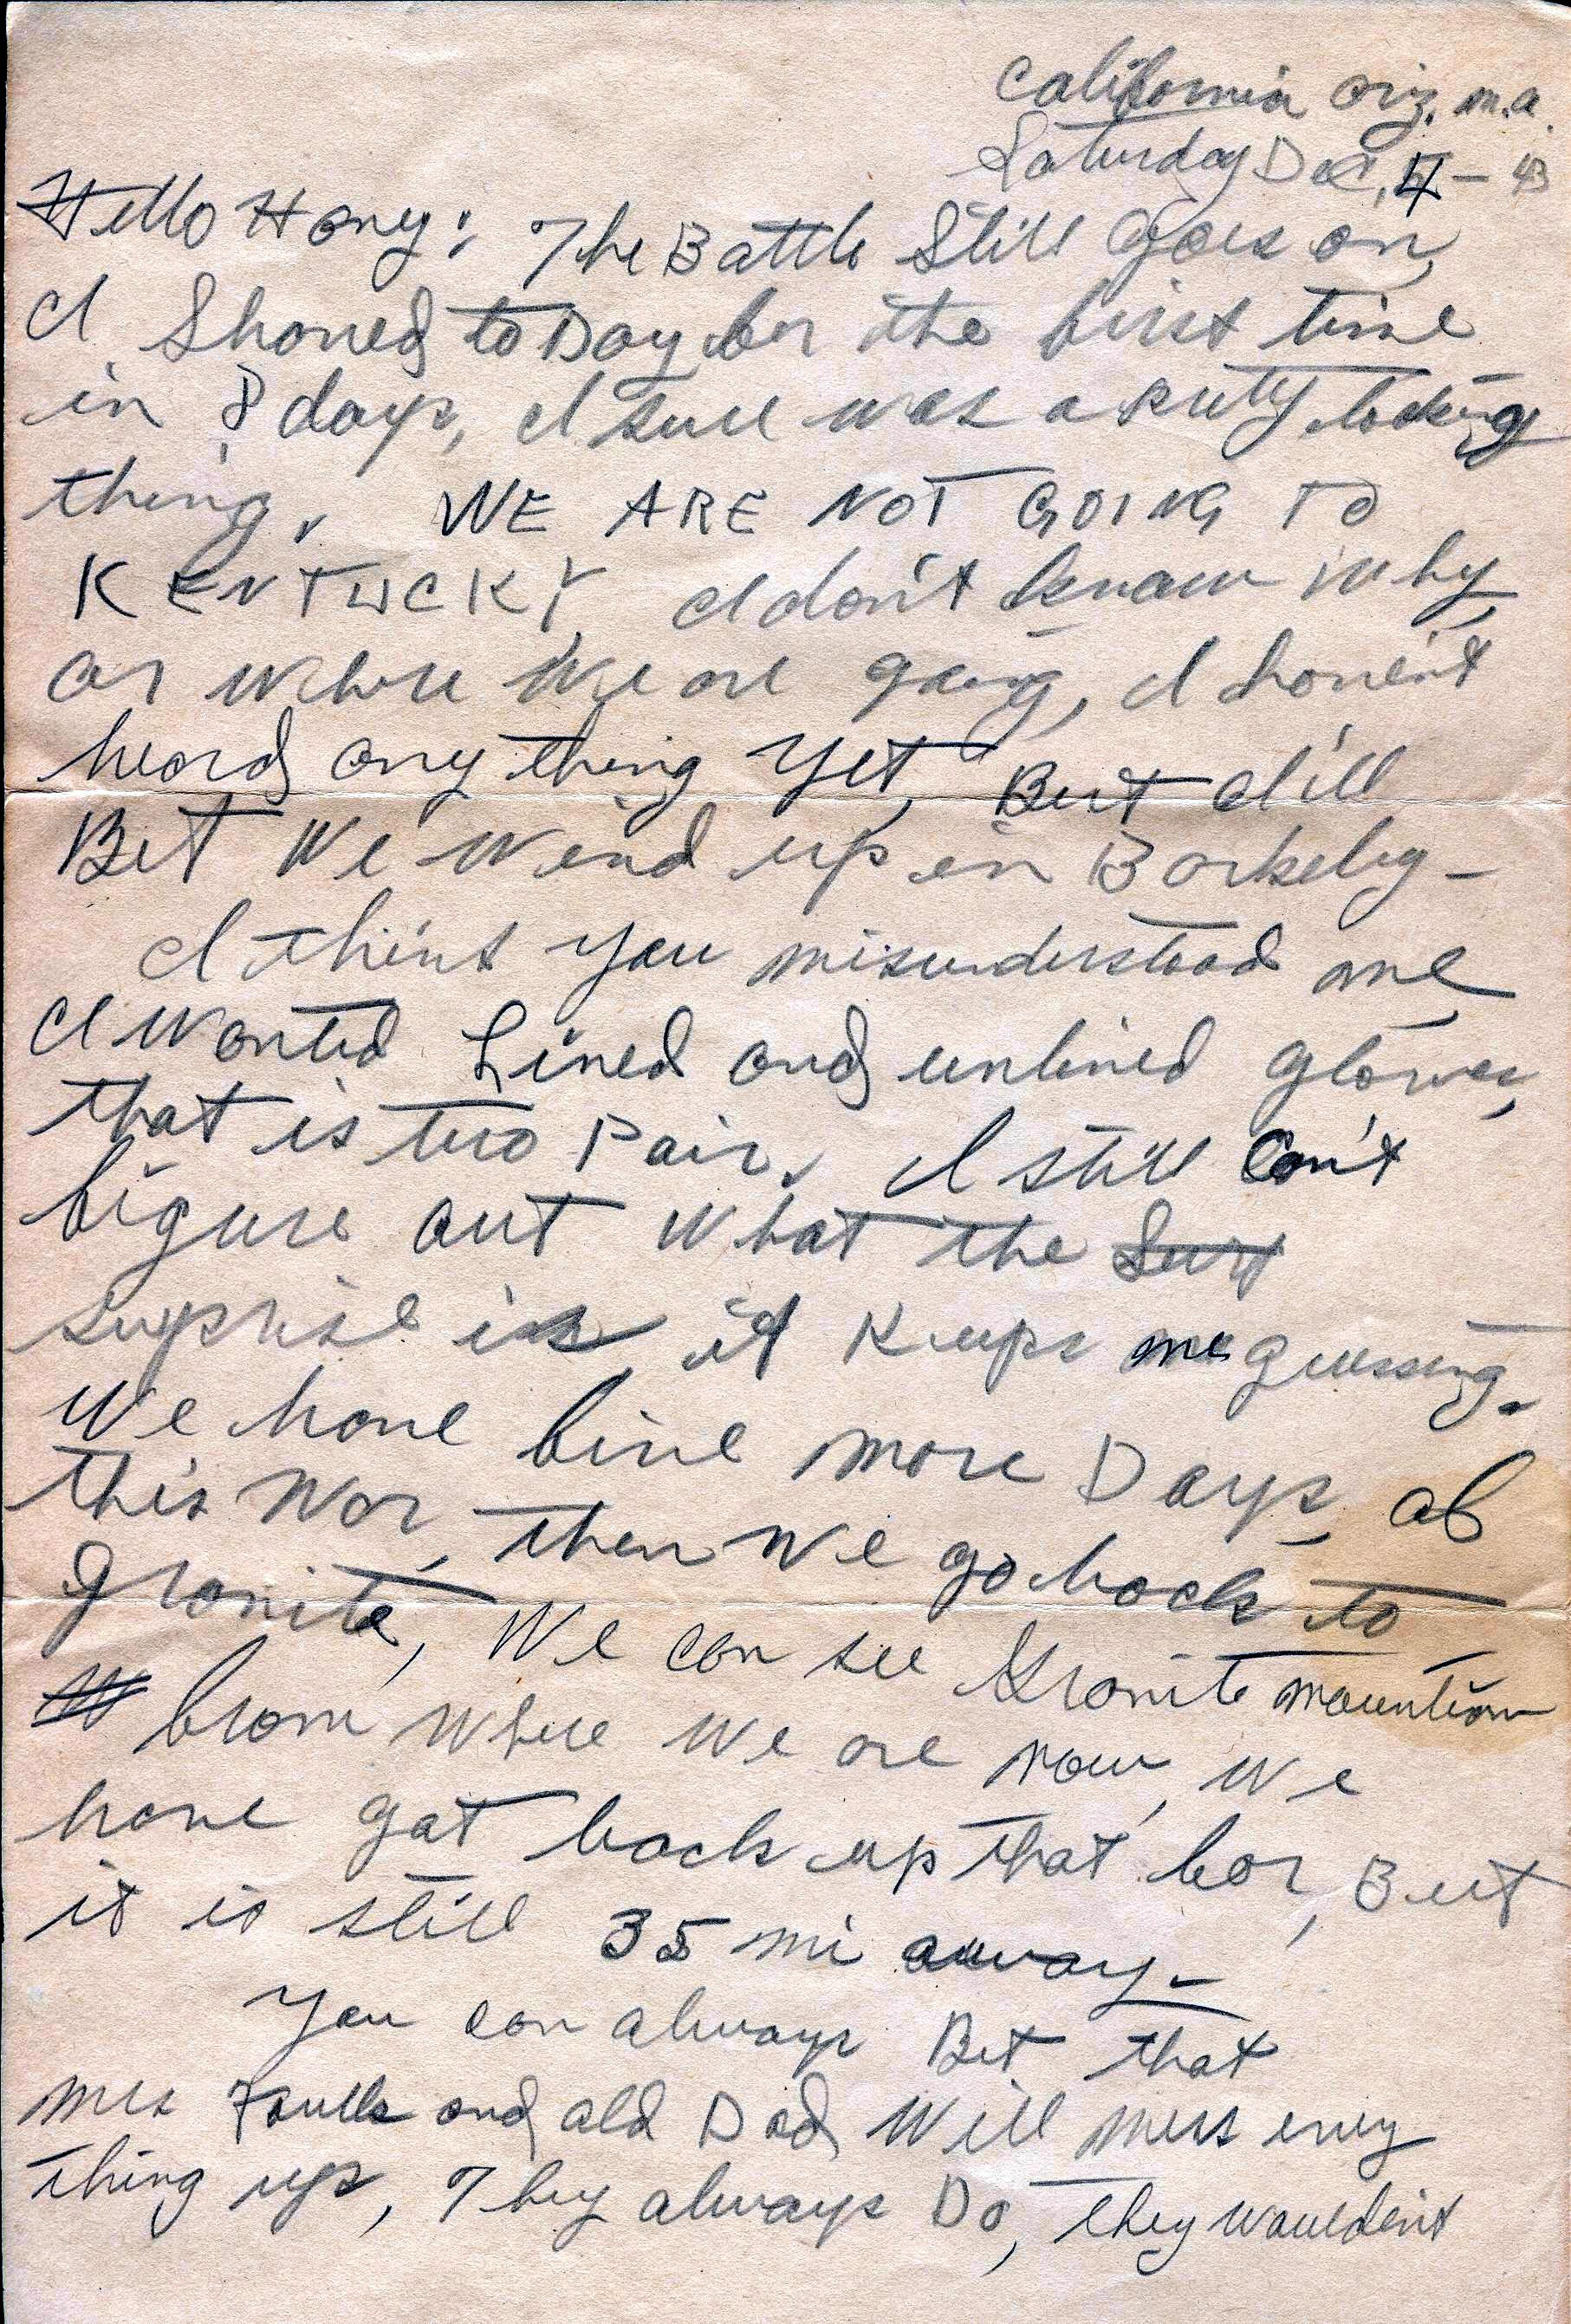 California Ariz. m.a.
Saturday Dec, 4 - 43
Hello Honey; The Battle Still Goes on,
I Shaved to Day for the first time
in 8 days, I sure was a putty looking
thing. WE ARE NOT GOING TO
KENTUCKY, I don't know why,
or where We are going, I haven't
heard any thing yet, But I'll
Bet We Wind up in Barkeley -
I think you misunderstood me,
I wanted Lined and unlined gloves,
that is two Pair. I still Can't
figure out what the Sur
surprise is, it Keeps me guessing.
We have five more Days, of
this War, then We go back to
Granite, We can see Granite mountian
from where We are now, We
have got back up that far, But
it is still 35 mi away -
You can always Bet that
mrs Faulk and old Dad Will mess every
thing up, They always Do, they wouldn't